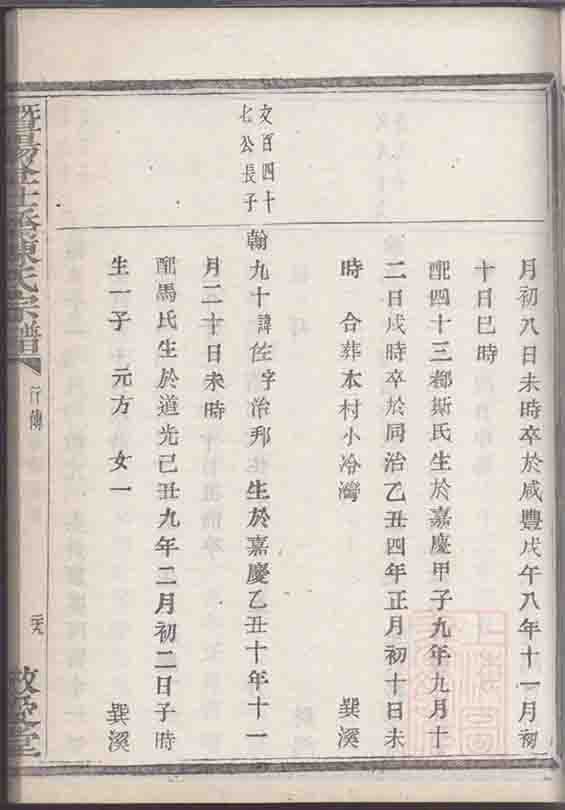 月初八日未時卒於咸豐戊午八年十一月初
十日巳時
配四十三都斯氏生於嘉慶甲子九年九月十
二日戌時卒於同治乙丑四年正月初十日未
時 合葬本村小冷灣 巽溪
文百四十
七公長子
翰九十諱佐字治邦生於嘉慶乙丑十年十一
月二十日未時
配馬氏生於道光己丑九年二月初二日子時
生一子 元方 女一 巽溪
暨陽 陳氏宗譜
行傳
二十九
敘倫堂